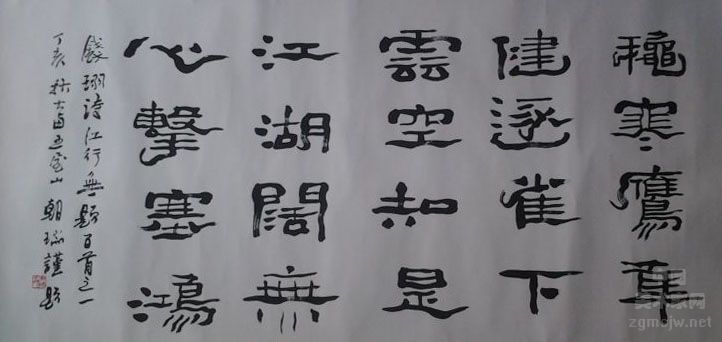 穐寒鷹隼
健逐雀下
雲空知是
江湖闊無
心擊塞鴻
錢珝詩江行無題百首之一
丁亥秋大卤山朝瑞謹題
zgmsjw.net